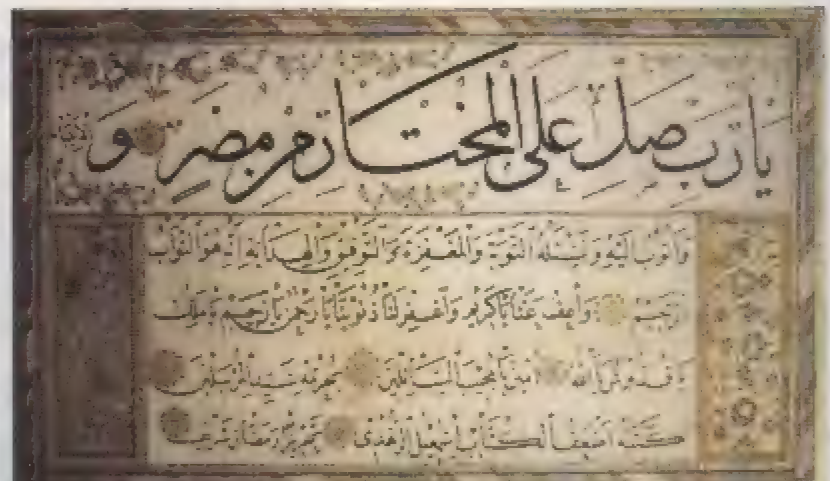 يَا رَبِّ صَلِّ عَلَى الْمُخْتَارِ مِنْ مُضَرٍ و
وَاَتُوبُ اِلَيْهِ وَنَسْئَلُهُ التَّوْبَةَ وَالْمَغْفِرَةَ وَالتَّوْفِيقَ وَالْهِدَايَةَ اِنَّهُ هُوَ التَّوَّابُ
الرَّحِيمُ وَاعْفُ عَنَّا يَا كَرِيمُ وَاغْفِرْ لَنَا ذُنُوبَنَا يَا رَحْمٰنُ يَا رَحِيمُ
يَا اَللهُ اٰمِينَ يَا مُجِيبَ السَّائِلِينَ بِحُرْمَةِ سَيِّدِ الْمُرْسَلِينَ
كَتَبَهُ اَضْعَفُ الْكُتَّابِ اِسْمٰعِيلُ الزُّهْدِى